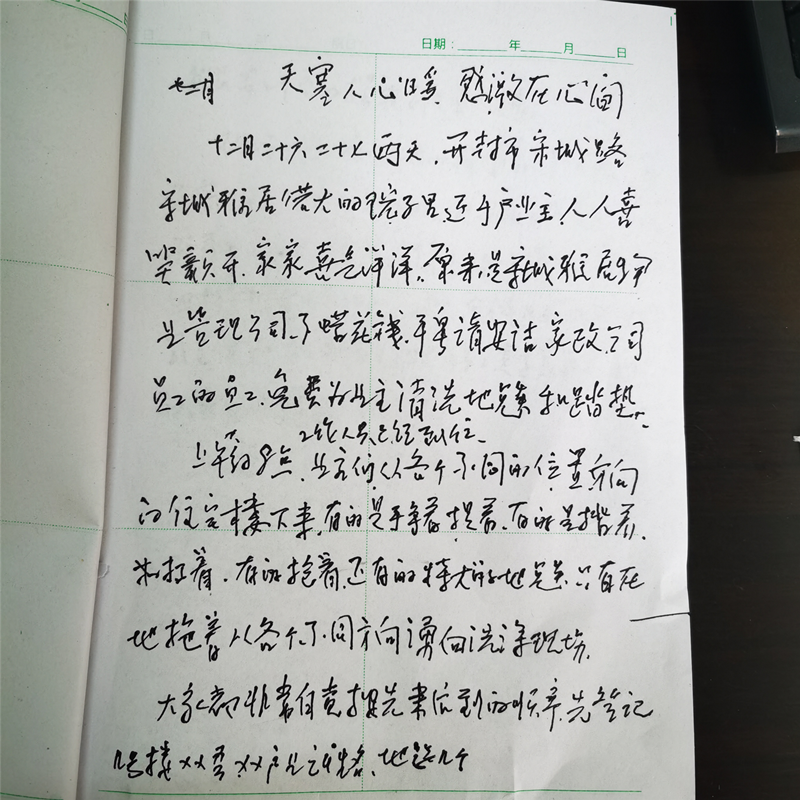 日期：______年_____月_____日
天寒人心暖 感激在心间
十二月二十六二十七两天，开封市宋城路
宋城雅居偌大的院子里，近千户业主，人人喜
笑颜开，家家喜气洋洋。原来是宋城雅居物
业管理公司，了腊花钱，聘请安洁家政公司
员工的员工，免费为业主清洗地毯和踏垫。
工作人员已经到位。
上午8点，业主们从各个不同的位置方向
的住宅楼下来，有的是手争着提着，有的是揹着，
扛着，有的抱着，还有的特大的地毯，只有在
地拖着从各个不同方向涌向洗涤现场。
大家都非常自觉按先来后到的顺序，先登记
几号楼××号××户业主姓名、地毯几个